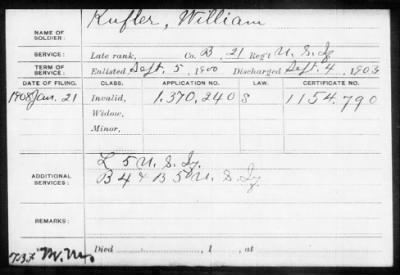 NAME OF SOLDIER: Kufler, William
SERVICE: Late rank, Co. B, 21 Reg't U. S. Inf
TERM OF SERVICE: Enlisted Sept. 5, 1900 Discharged Sept. 4, 1903
DATE OF FILING. CLASS. APPLICATION NO. LAW. CERTIFICATE NO.
1908 Jan. 21 Invalid, 1.370,240 S 1154.790
Widow,
Minor,
ADDITIONAL SERVICES: L 5 U. S. Inf.
B 4 & B 5 U. S. Inf
REMARKS:
Died , 1 , at